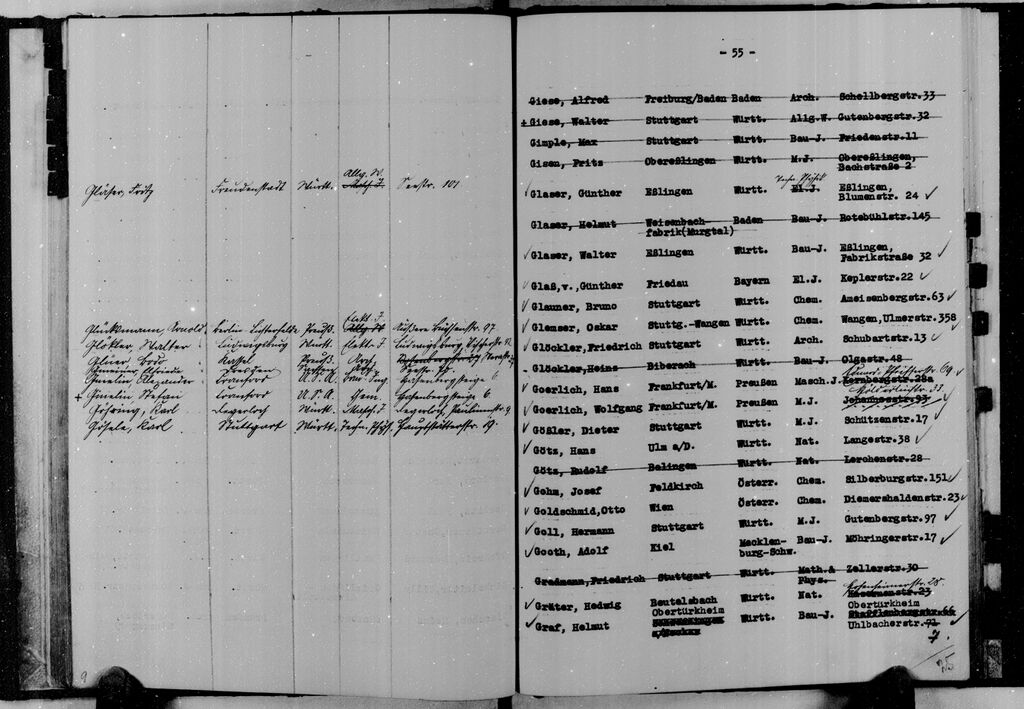 Gläser, Fritz Freudenstadt Württ. Allg. W. Seestr. 101
Glückmann, Arnold Berlin-Lichterfelde Preuß. Elekt. J.
Glökler, Walter Ludwigsburg Württ. Elektr. J. Ludwigsburg
Kassel Preuß. Arch.
Dresden
Gmelin Alexander Cranford U.S.A. Hasenbergsteige 6
+ Gmelin Stefan Cranford U.S.A. Chem. Hasenbergsteige 6
Göhring, Karl Degerloch Württ. Masch. J. Degerloch, 9
Gösele, Karl Stuttgart Württ. Techn. Phys. Hauptstätterstr. 19.
9
- 55 -
Giese, Alfred Freiburg/Baden Baden Arch. Schellbergstr.33
+ Giese, Walter Stuttgart Württ. Allg.W. Gutenbergstr.32
Gimple, Max Stuttgart Württ. Bau-J. Friedenstr.11
Gisen, Fritz Obereßlingen Württ. M.J. Obereßlingen,
Bachstraße 2
Techn. Physik
Glaser, Günther Eßlingen Württ. El.J. Eßlingen,
Blumenstr. 24 ✓
Glaser, Helmut Weisenbach- Baden Bau-J. Rotebühlstr.145
fabrik(Murgtal)
✓ Glaser, Walter Eßlingen Württ. Bau-J. Eßlingen,
Fabrikstraße 32 ✓
✓ Glaß,v.,Günther Friedau Bayern El.J. Keplerstr.22 ✓
✓ Glauner, Bruno Stuttgart Württ. Chem. Ameisenbergstr.63 ✓
✓ Glemser, Oskar Stuttg.-Wangen Württ. Chem. Wangen,Ulmerstr.358
✓ Glöckler,Friedrich Stuttgart Württ. Arch. Schubartstr.13 ✓
- Glöckler,Heinz Biberach Württ. Bau-J. Olgastr.48
✓ Goerlich, Hans Frankfurt/M. Preußen Masch.J. Kernbergstr.28a
✓ Goerlich, Wolfgang Frankfurt/M. Preußen M.J. Johannesstr.93 ✓
✓ Gößler, Dieter Stuttgart Württ. M.J. Schützenstr.17 ✓
✓ Götz, Hans Ulm a/D. Württ. Nat. Langestr.38 ✓
Götz, Rudolf Balingen Württ. Nat. Lerchenstr.28
✓ Gohm, Josef Feldkirch Österr. Chem. Silberburgstr.151 ✓
✓ Goldschmid,Otto Wien Österr. Chem. Diemershaldenstr.23 ✓
✓ Goll, Hermann Stuttgart Württ. M.J. Gutenbergstr.97 ✓
✓ Gooth, Adolf Kiel Macklen- Bau-J. Möhringerstr.17 ✓
burg-Schw.
Gradmann,Friedrich Stuttgart Württ. Math.& Zellerstr.30
Phys.
✓ Gräter, Hedwig Beutalsbach Württ. Nat.
Obertürkheim Obertürkheim
✓ Graf, Helmut Württ. Bau-J.
Uhlbacherstr.71 ✓
7.
25